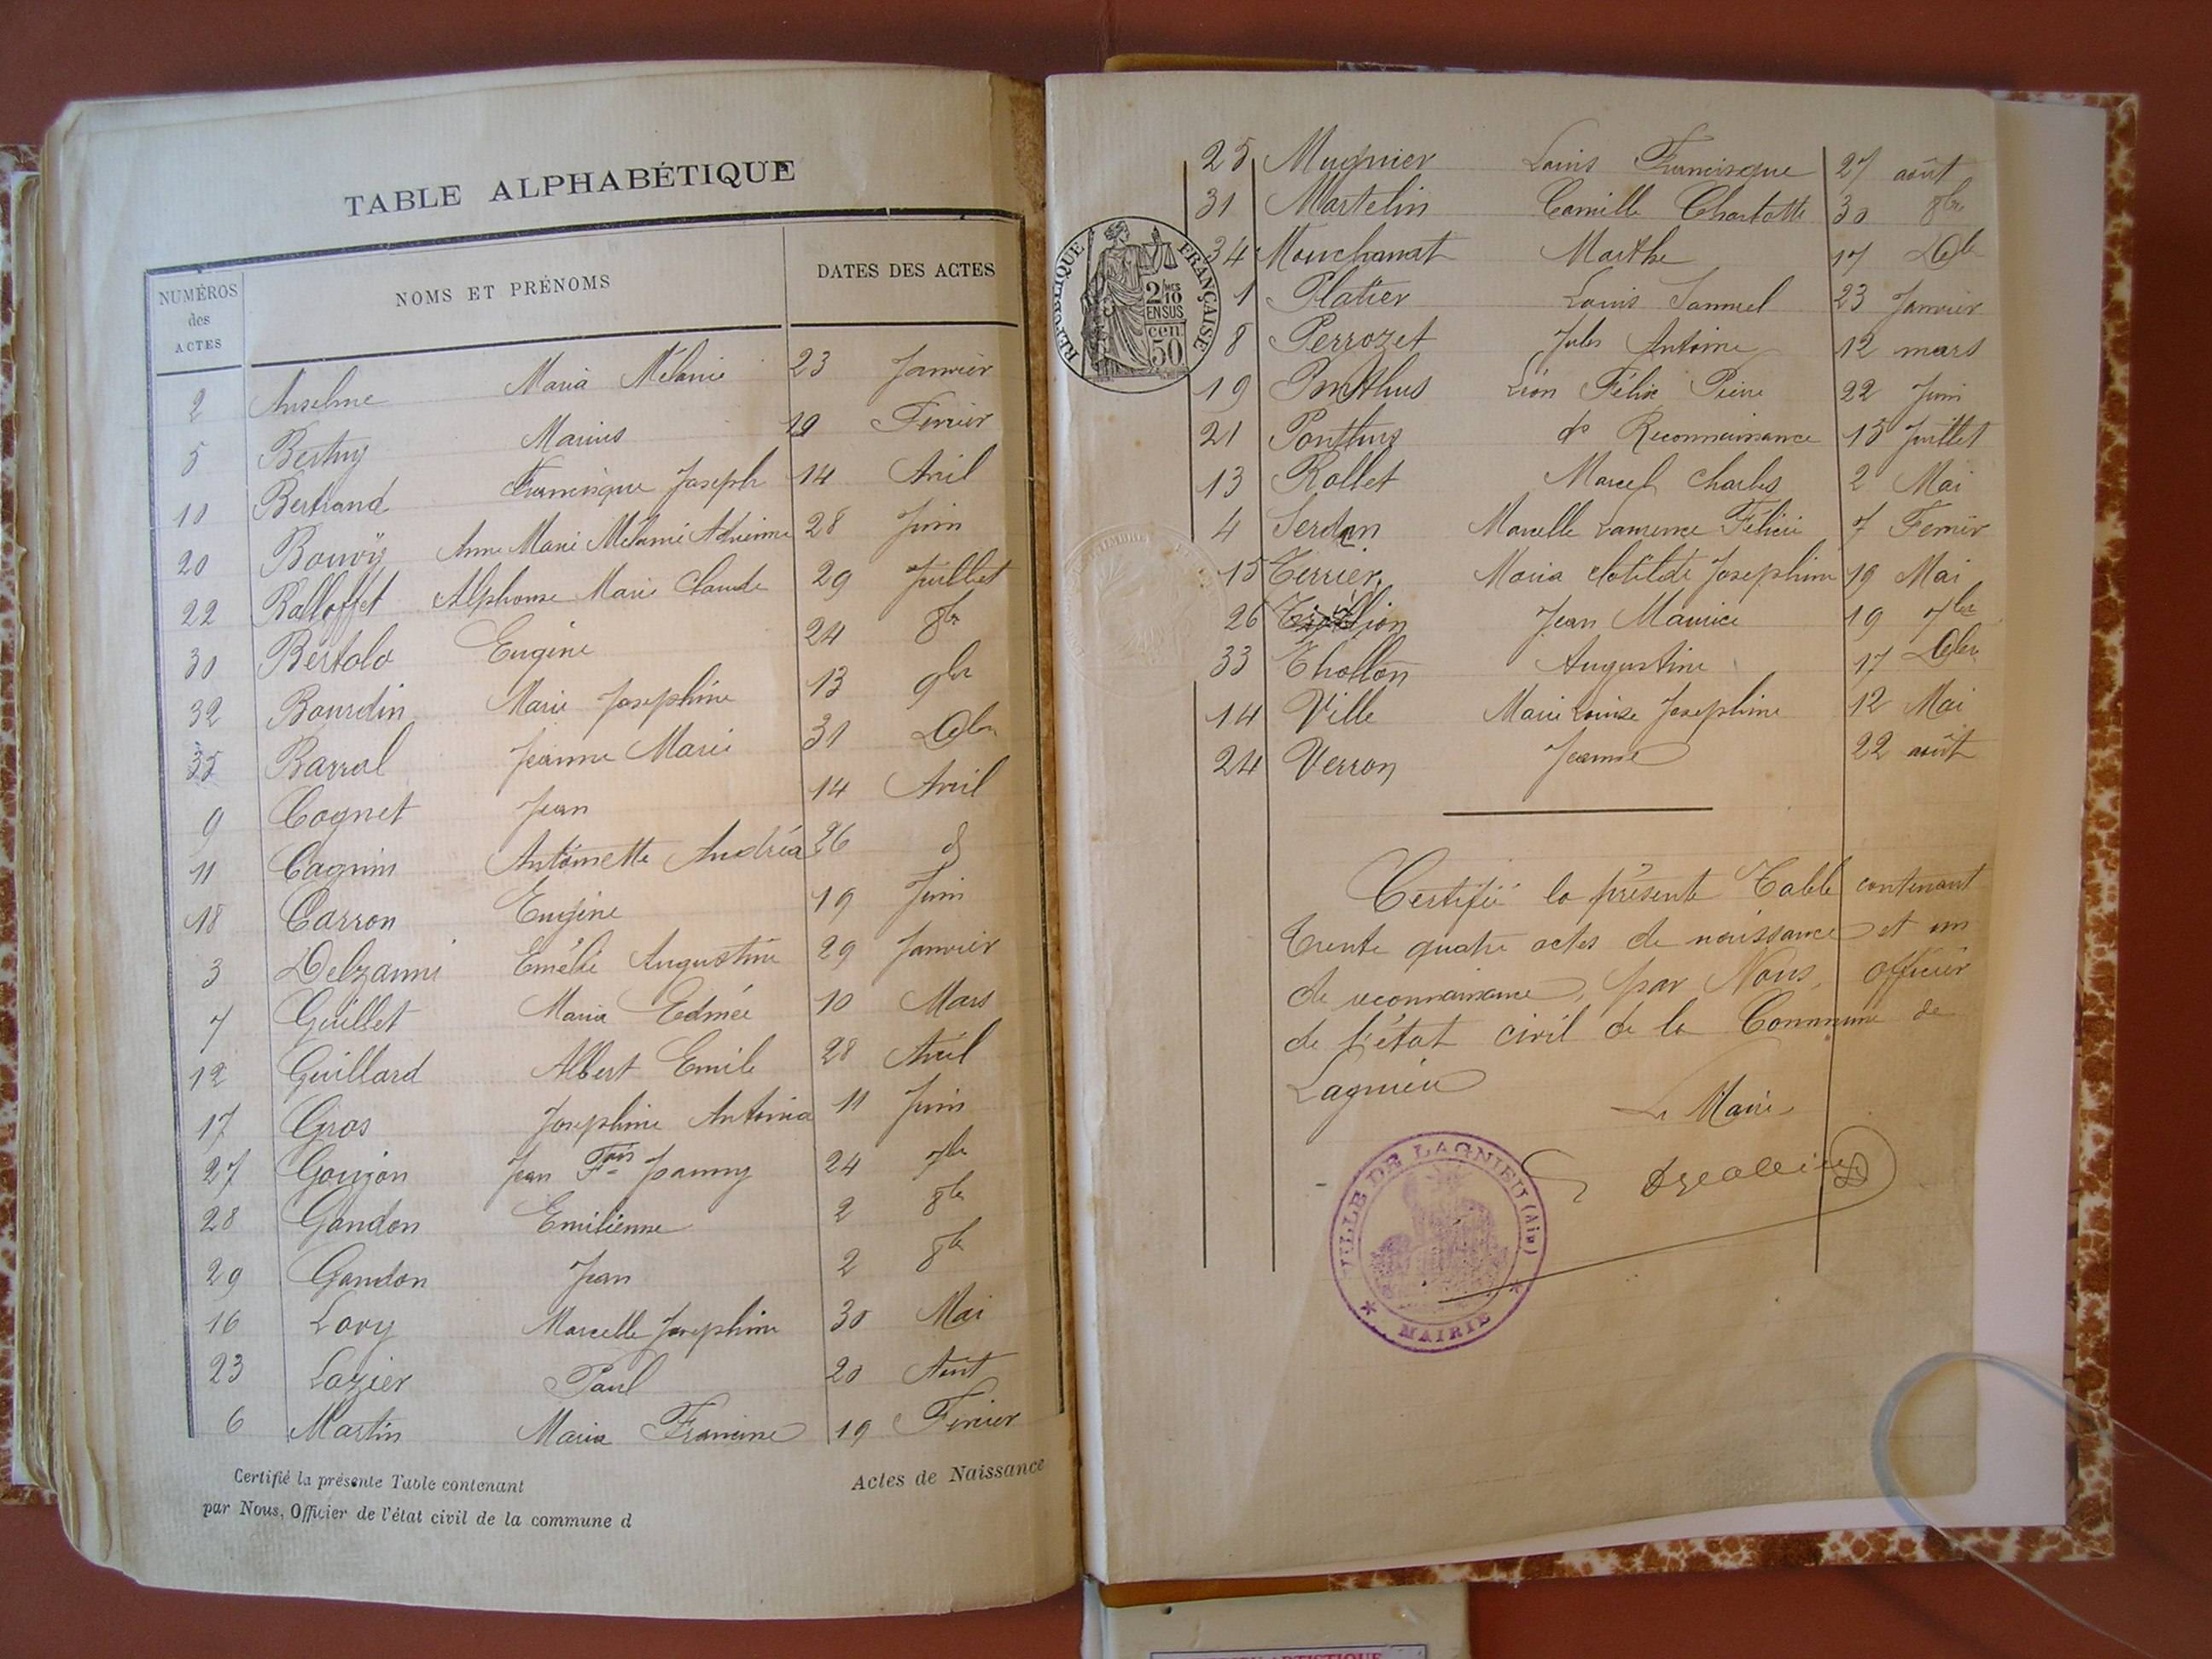 TABLE ALPHABÉTIQUE
NUMÉROS des ACTES
NOMS ET PRÉNOMS
DATES DES ACTES
2 Anselme Maria Mélanie 23 Janvier
5 Berthy Marius 19 Février
10 Bertrand Francisque Joseph 14 Avril
20 Bouvÿ Anne Marie Mélanie Adrienne 28 Juin
22 Balloffet Alphonse Marie Claude 29 Juillet
30 Bertolo Eugène 24 8bre
32 Bourdin Marie Josephine 13 9bre
35 Barral Jeanne Marie 31 Xbre
9 Cognet Jean 14 Avril
11 Cagnin Antoinette Andréa 26 d
18 Carron Eugène 19 Juin
3 Delzanni Emélie Augustine 29 Janvier
7 Guillet Maria Edmée 10 Mars
12 Guillard Albert Emile 28 Avril
17 Gros Josephine Antonia 11 Juin
27 Goujon Jean Fois Joanny 24 7bre
28 Gandon Emilienne 2 8bre
29 Gandon Jean 2 8bre
16 Lovy Marcelle Josephine 30 Mai
23 Lozier Paul 20 Aout
6 Martin Maria Francine 19 Février
Certifié la présente Table contenant Actes de Naissance
par Nous, Officier de l'état civil de la commune d
25 Mugnier Louis Francisque 27 août
31 Martelin Camille Charlotte 30 8bre
34 Mouchanat Marthe 17 Xbre
1 Platier Louis Samuel 23 Janvier
8 Perrozet Jules Antoine 12 mars
19 Ponthus Léon Félix Pierre 22 Juin
21 Ponthus do Reconnaissance 15 Juillet
13 Rollet Marcel Charles 2 Mai
4 Serdan Marcelle Laurence Félicie 7 Fevrier
15 Terrier Maria Clotilde Josephine 19 Mai
26 Jean Maurice 19 7bre
33 Thollon Augustine 17 Xbre
14 Ville Marie Louise Josephine 12 Mai
24 Verron Jeanne 22 août
Certifié la présente Table contenant
trente quatre actes de naissance et un
de reconnaissance, par Nous, officier
de l'état civil de la Commune de
Lagnieu
Le Maire
RÉPUBLIQUE FRANÇAISE
2/10 EN SUS
50 cen
VILLE DE LAGNIEU (Ain)
* MAIRIE *